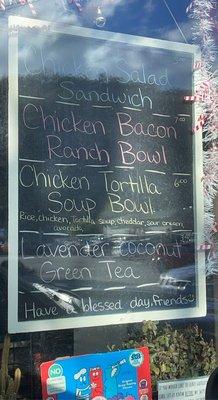 Chicken Salad
Sandwich
Chicken Bacon 7.00
Ranch Bowl
Chicken Tortilla 6.00
Soup Bowl
Rice, Chicken, Tortilla soup, cheddar, sour cream,
avocado
Lavender coconut
Green Tea
Have a blessed day, friends
NO